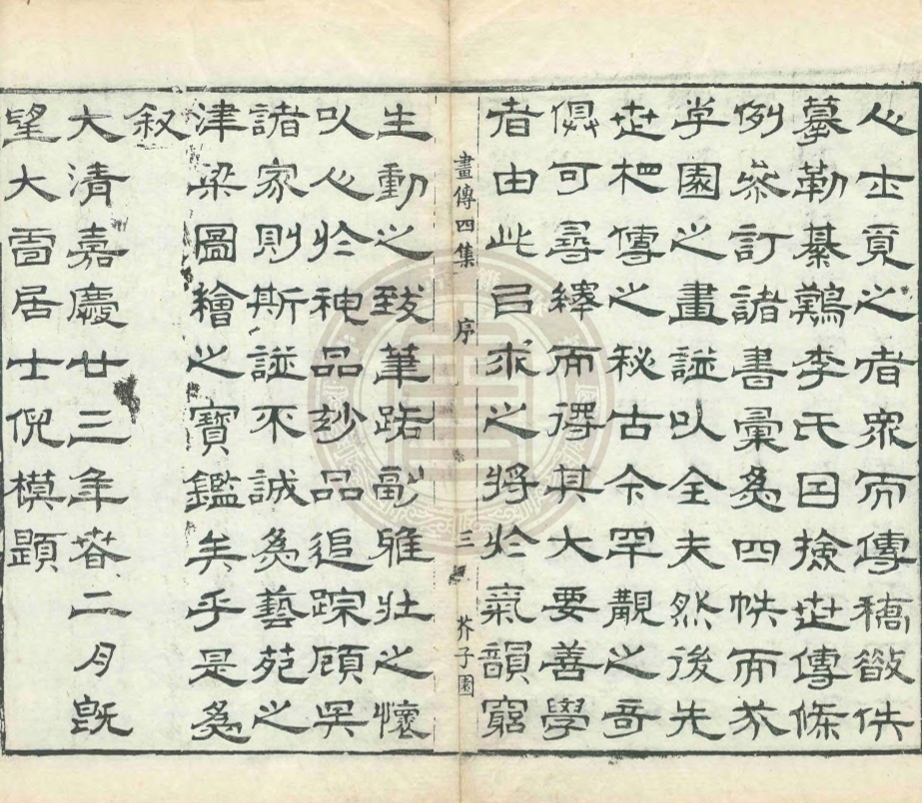 心士覓之者眾而傳稿散佚
摹勒綦難李氏因撿世傳條
例參訂諸書彙為四帙而芥
子園之畫譜以全夫然後先
世相傳之秘古今罕覯之奇
俱可尋繹而得其大要善學
者由此以求之將於氣韻窮
畫傳四集 序 三 芥子園
生動之致筆副雅壯之懷
以心於神品妙品追踪顧吳
諸家則斯譜不誠為藝苑之
津梁圖繪之寶鑑矣乎是為
敘
大清嘉慶廿三年春二月既
望大雷居士倪模題